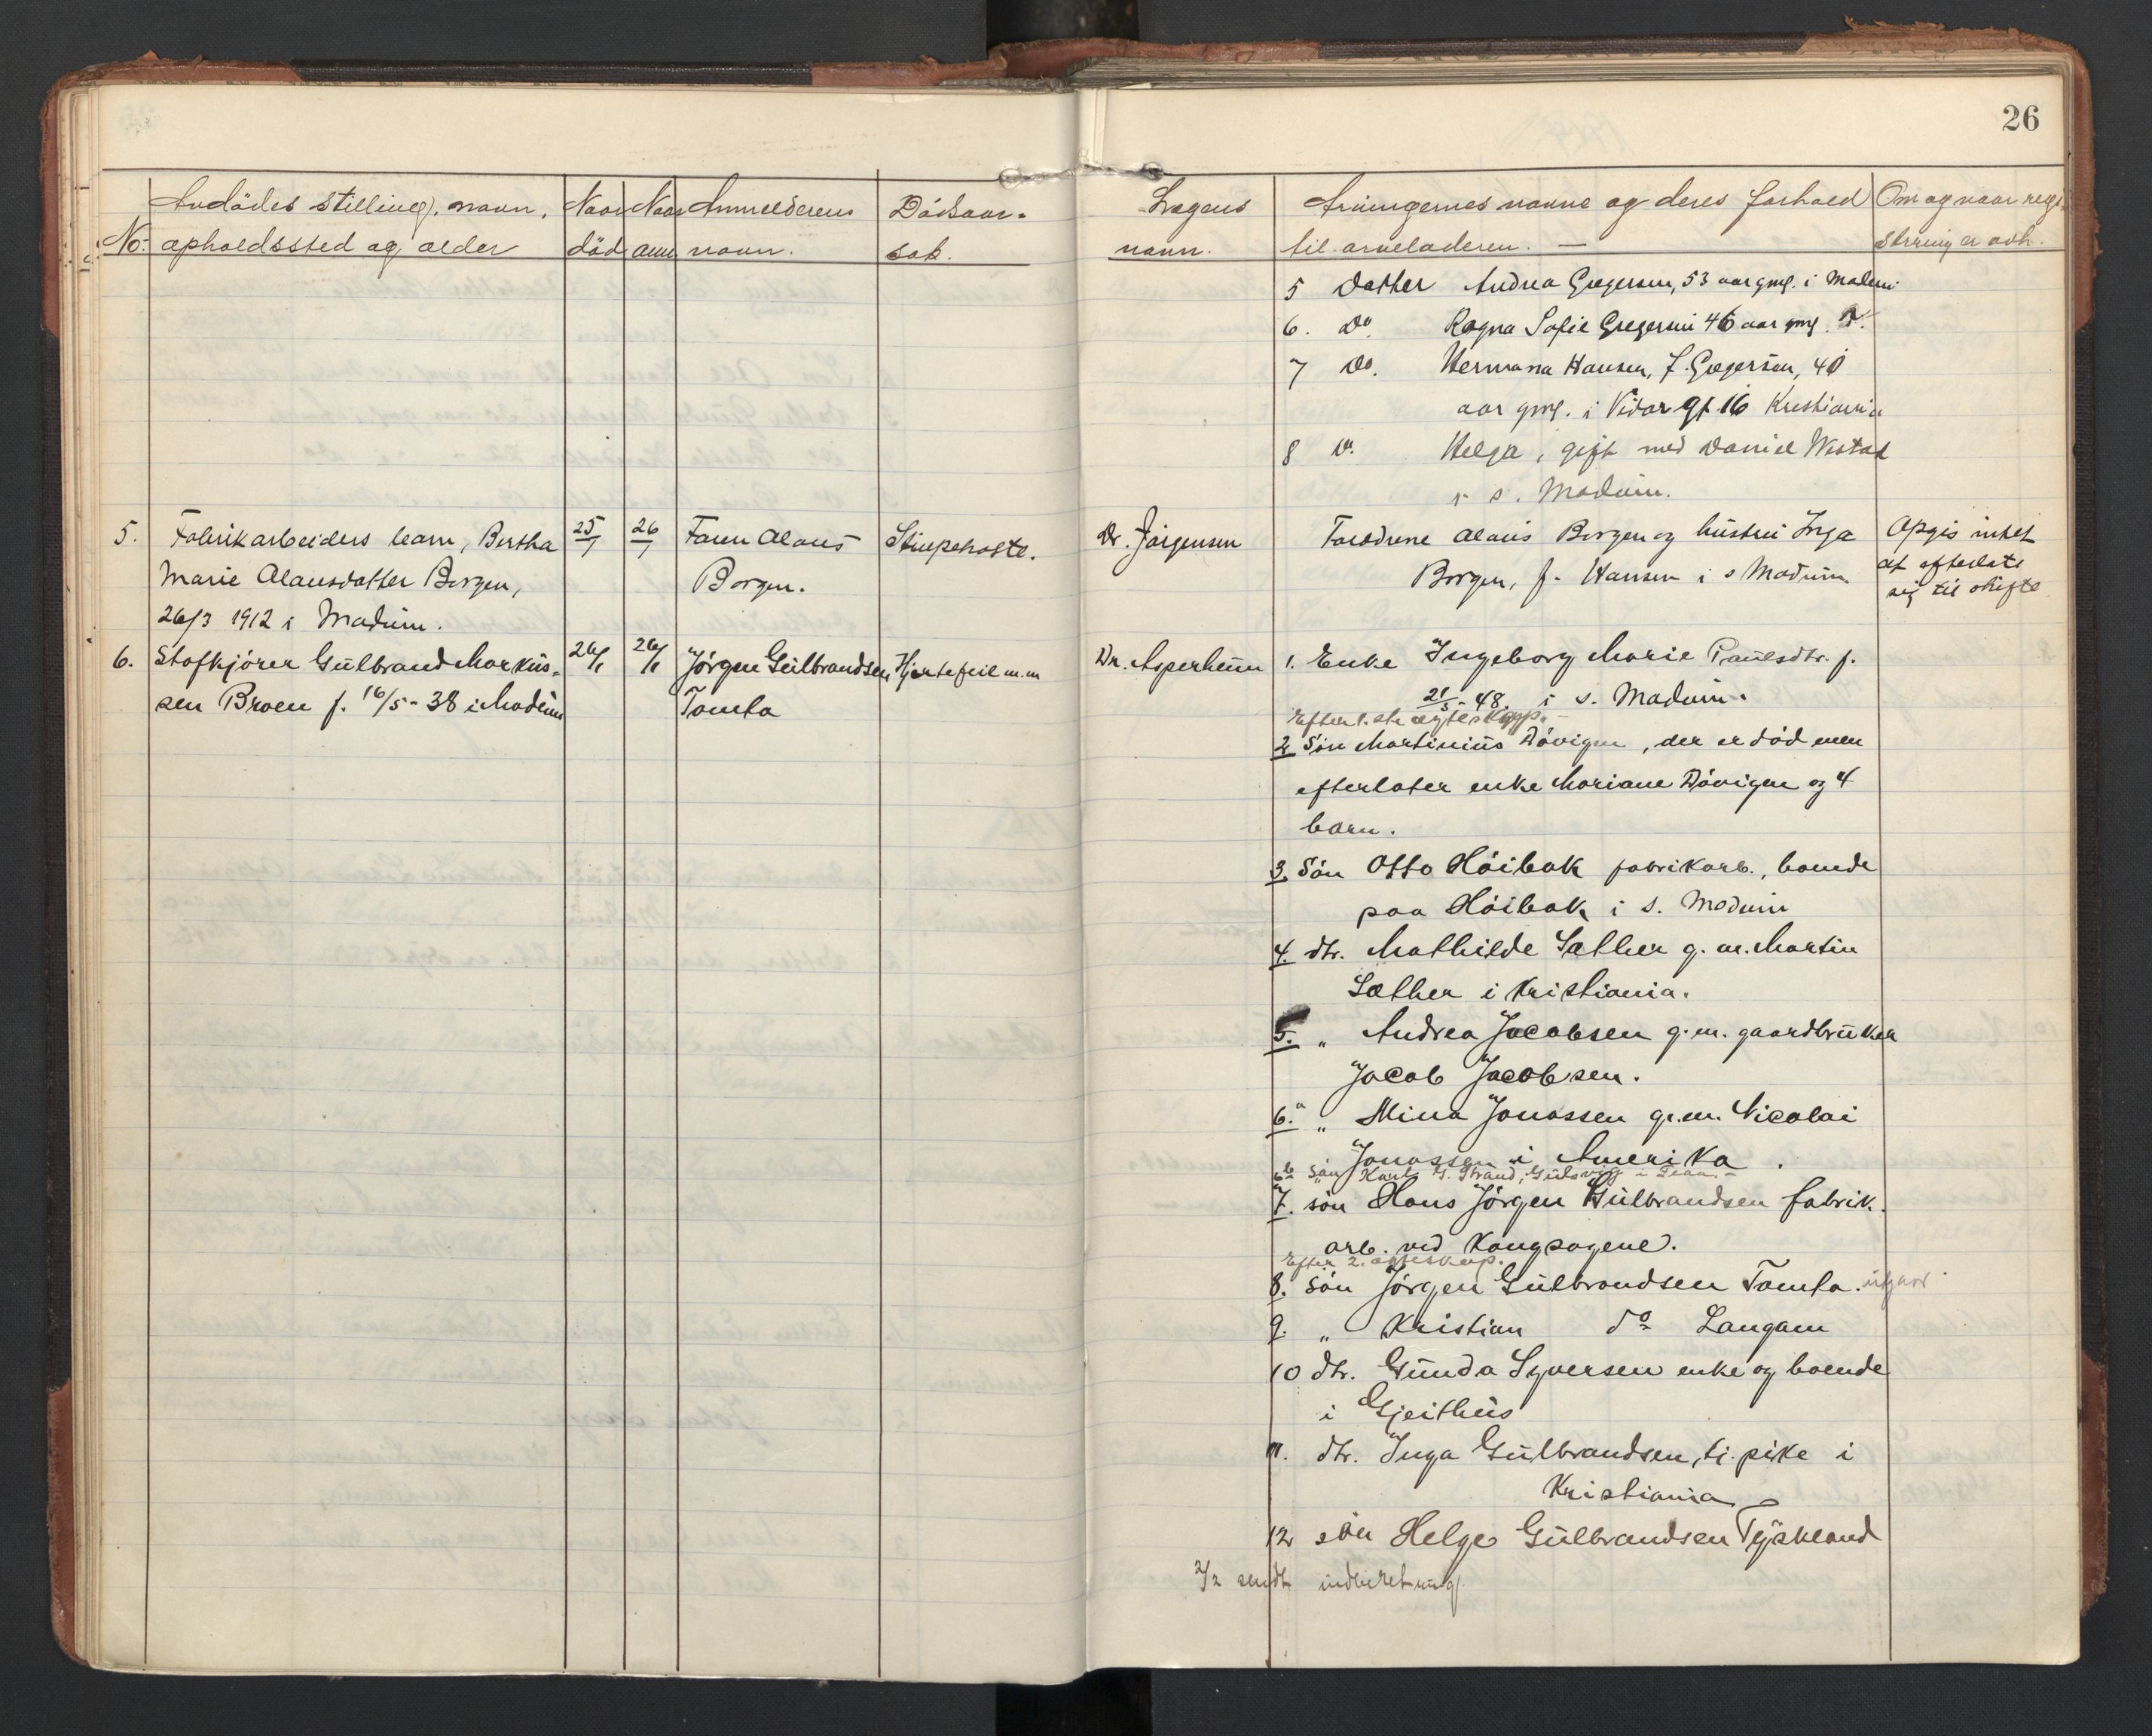 26
Avdödes stilling, navn,
No. opholdssted og alder
Naar
död
Naar
anm
Anmelderens
navn.
Dödsaar-
sak.
Lægens
navn.
Arvingernes navne og deres forhold
til arveladeren. —
Om og naar regi-
strering er avh.
5 Datter Andrea Gregersen, 53 aar gml. i Modum
6. Do Ragna Sofie Gregersen 46 aar gml. Do.
7 Do. Hermana Hansen, f. Gregersen, 40
aar gml. i Vidar gt 16 Kristiania
8 Do. Helga, gift med Daniel
i s. Modum.
5. Fabrikarbeiders barn, Bertha
Marie Alausdatter Borgen,
26/3 1912 i Modum.
25/1
26/1
Faren Alaus
Borgen.
Strupehoste.
Dr. Jörgensen
Forældrene Alaus Borgen og hustru Inga
Borgen, f. Hansen i s Modum
Opgis intet
at efterlate
sig til skifte
6. Stofkjörer Gulbrand Markus-
sen Broen f. 16/5-38 i Modum
26/1
26/1
Jörgen Gulbrandsen
Tomta
Hjertefeil m.m
Dr. Asperheim
1. Enke Ingeborg Marie Paulsdtr. f.
21/5-48. i s. Modum.
Efter 1.ste egteskap. —
2 Sön Martinius Dövigen, der er död men
efterlater enke Mariane Dövigen og 4
barn.
3. Sön Otto Höibak fabrikarb., boende
paa Höibak i s. Modum
4. dtr. Mathilde Sæther g. m. Martin
Sæther i Kristiania.
5. „ Andrea Jacobsen g. m. gaardbruker
Jacob Jacobsen.
6.a „ Mina Jonassen g. m. Nicolai
Jonassen i Amerika.
6b sön Karl G. Strand,
7. sön Hans Jörgen Gulbrandsen fabrik.
arb. ved Kongssagene.
Efter 2. egteskap.
8. sön Jörgen Gulbrandsen Tomta.
9. „ Kristian do Langam
10 dtr. Gunda Syversen enke og boende
i Gjeithus
11. dtr. Inga Gulbrandsen, tj. pike i
Kristiania
12 sön Helge Gulbrandsen Tyskland
2/2 sendt indberetning.